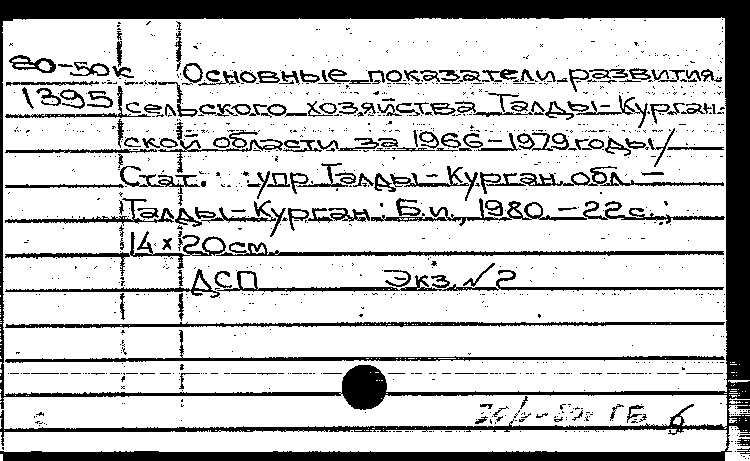 80-50к Основные показатели развития
1395 сельского хозяйства Талды-Курган-
ской области за 1966-1979 годы /
Стат. упр. Талды-Курган. обл. —
Талды-Курган : Б.и., 1980. - 22 с. ;
14 × 20 см.
ДСП Экз. № 2
ГБ